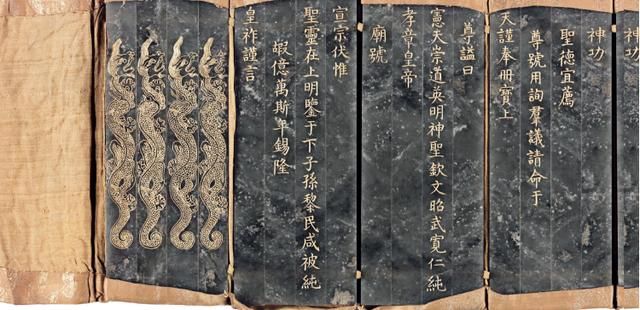 神功
神功
聖德宜薦
尊號用詢羣議請命于
天謹奉冊寶上
尊諡曰
憲天崇道英明神聖欽文昭武寬仁純
孝章皇帝
廟號
宣宗伏惟
聖靈在上明鑒于下子孫黎民咸被純
嘏億萬斯年錫隆
皇祚謹言